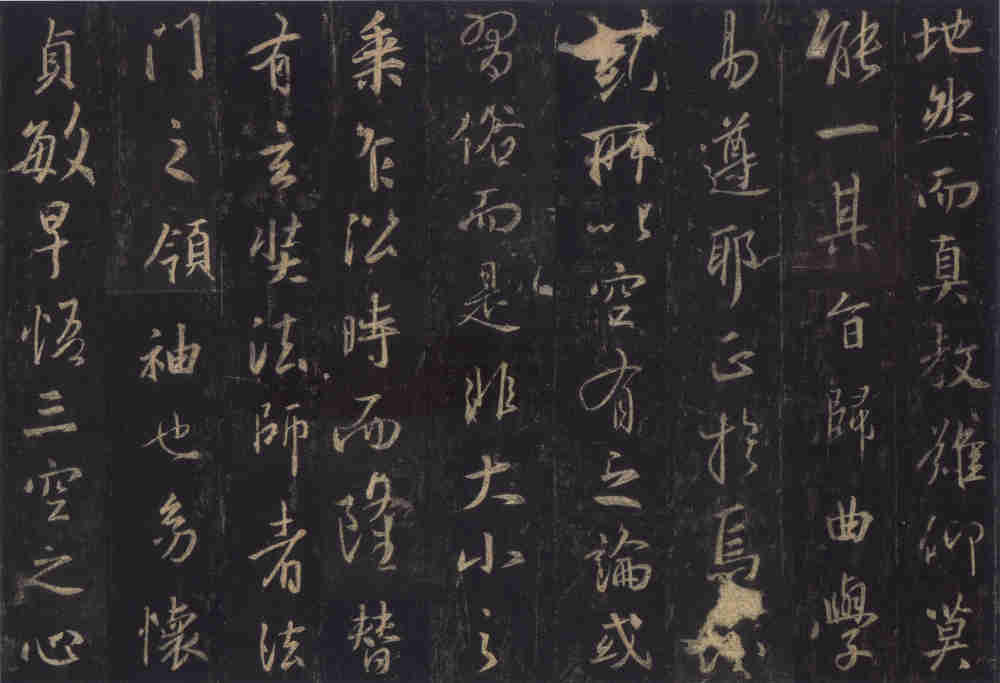 地然而真教難仰莫
能一其旨歸曲學
易遵耶正於焉
糾所以空有之論或
習俗而是非大小之
乘乍沿時而隆替
有玄奘法師者法
門之領袖也幼懷
貞敏早悟三空之心